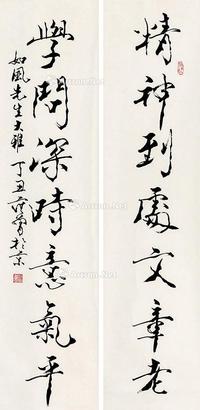 精神到處文章老
學問深時意氣平
如風先生大雅 丁丑 范曾於京